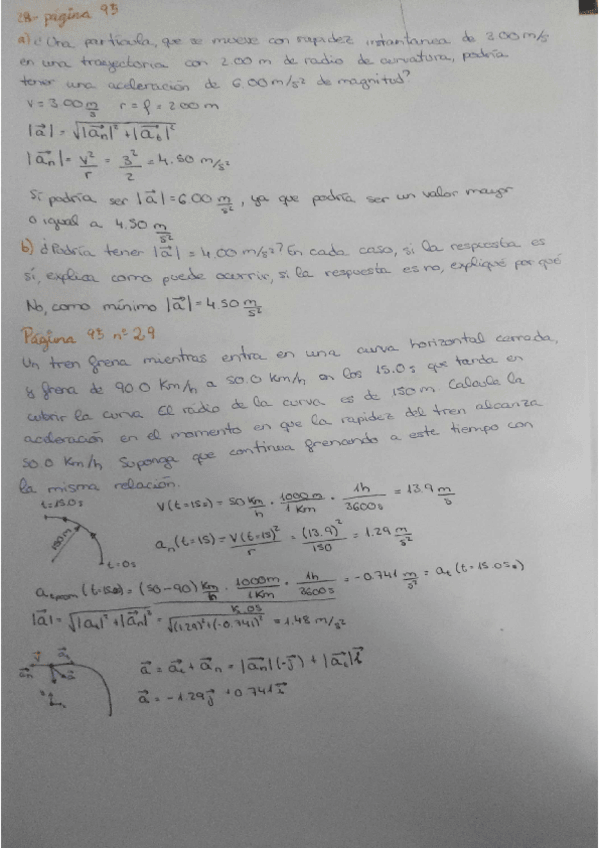 28- página 95
a) ¿Una partícula, que se mueve con rapidez instantanea de 3.00 m/s
en una trayectoria con 2.00 m de radio de curvatura, podría
tener una aceleración de 6.00 m/s² de magnitud?
v = 3.00 m/s r = ρ = 2.00 m
|a⃗| = √|a⃗n|² + |a⃗t|²
|a⃗n| = v²/r = 3²/2 = 4.50 m/s²
Sí podría ser |a⃗| = 6.00 m/s², ya que podría ser un valor mayor
o igual a 4.50 m/s²
b) ¿Podría tener |a⃗| = 4.00 m/s²? En cada caso, si la respuesta es
sí, explica como puede ocurrir, si la respuesta es no, explique por qué
No, como mínimo |a⃗| = 4.50 m/s²
Página 95 nº 29
Un tren frena mientras entra en una curva horizontal cerrada,
y frena de 90.0 Km/h a 50.0 km/h en los 15.0s que tarda en
cubrir la curva. El radio de la curva es de 150 m. Calcula la
aceleración en el momento en que la rapidez del tren alcanza
50.0 Km/h. Suponga que continua frenando a este tiempo con
la misma relación.
t=15.0s
150m
t=0s
v(t=15s) = 50 Km/h · 1000m/1Km · 1h/3600s = 13.9 m/s
an(t=15) = v(t=15)²/r = (13.9)²/150 = 1.29 m/s²
(50-90) Km/h · 1000m/1Km · 1h/3600s / 15.0s = -0.741 m/s² = at(t=15.0s)
|a⃗| = √|a⃗t|² + |a⃗n|² = √(1.29)² + (-0.741)² = 1.48 m/s²
a⃗ = a⃗t + a⃗n = |a⃗n|(-j⃗) + |a⃗t|i⃗
a⃗ = -1.29j⃗ + 0.741i⃗